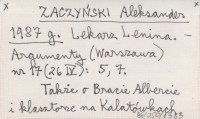 ZACZYŃSKI Aleksander
1987 g. Lekarz Lenina. -
Argumenty (Warszawa)
nr 17 (26 IV): 5, 7.
Także o Bracie Albercie
i klasztorze na Kalatówkach